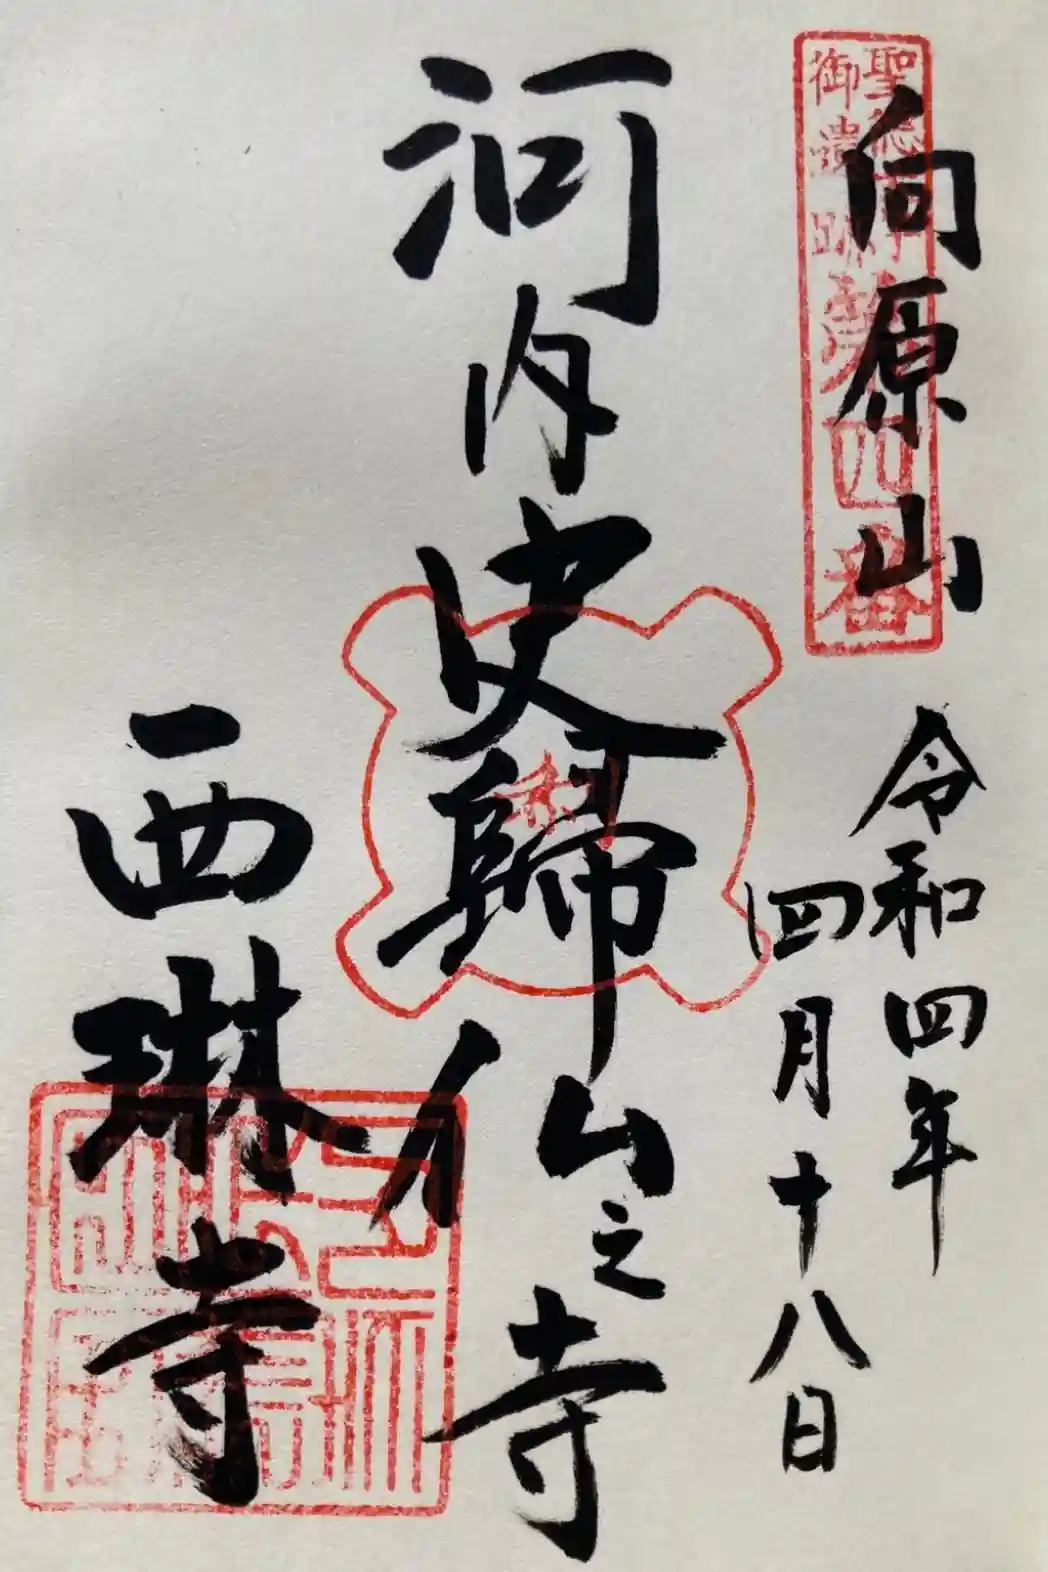 聖徳太子
御遺跡
第四番
向原山
令和四年
四月十八日
河内史歸仏之寺
西琳寺